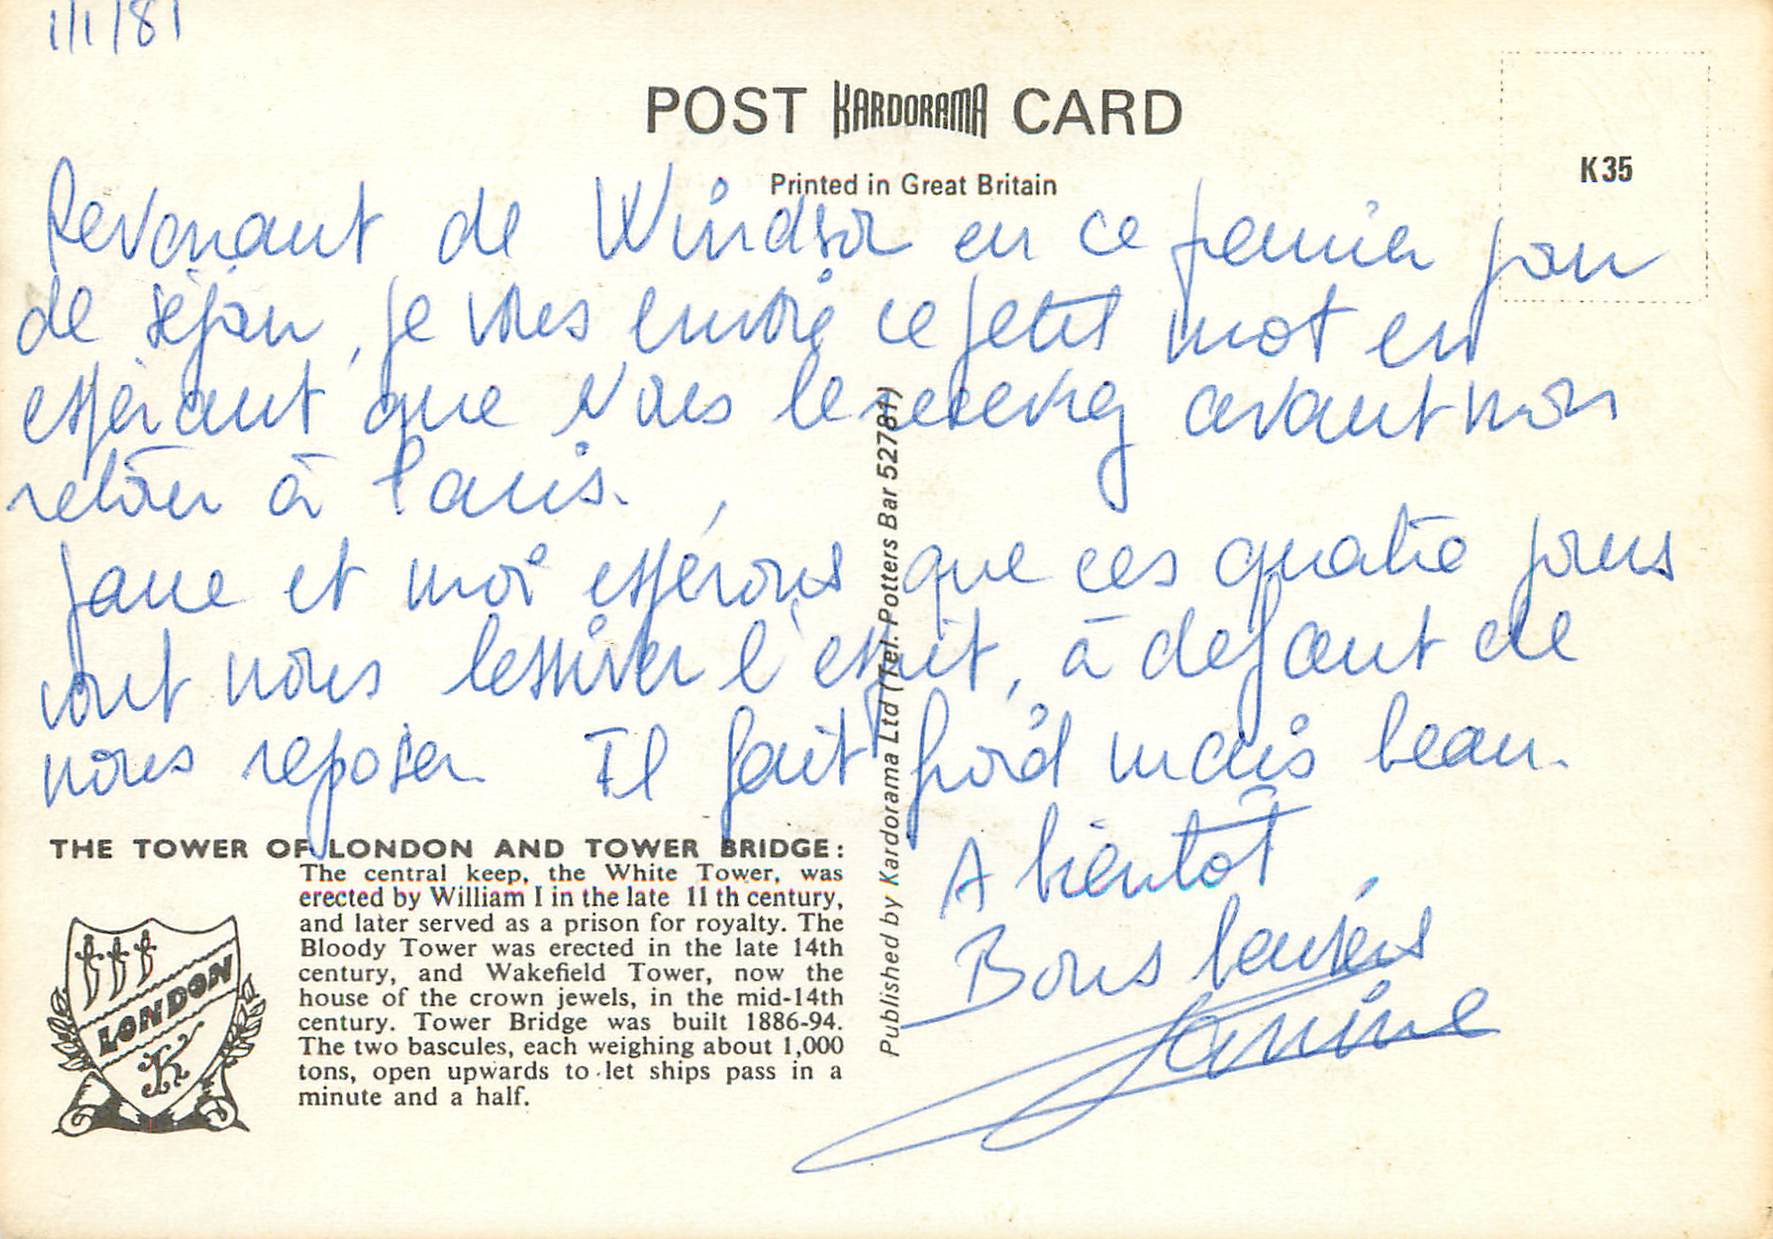 1/1/81
POST KARDORAMA CARD
Printed in Great Britain
K35
Revenant de Windsor en ce premier jour
de séjour, je vous envoie ce petit mot en
espérant que vous le recevrez avant mon
retour à Paris.
Jane et moi espérons que ces quatre jours
vont nous lessiver l'esprit, à défaut de
nous reposer. Il fait froid mais beau.
A bientôt
Bons baisers
Janine
THE TOWER OF LONDON AND TOWER BRIDGE:
The central keep, the White Tower, was
erected by William I in the late 11 th century,
and later served as a prison for royalty. The
Bloody Tower was erected in the late 14th
century, and Wakefield Tower, now the
house of the crown jewels, in the mid-14th
century. Tower Bridge was built 1886-94.
The two bascules, each weighing about 1,000
tons, open upwards to let ships pass in a
minute and a half.
LONDON
K
Published by Kardorama Ltd (Tel. Potters Bar 52781)